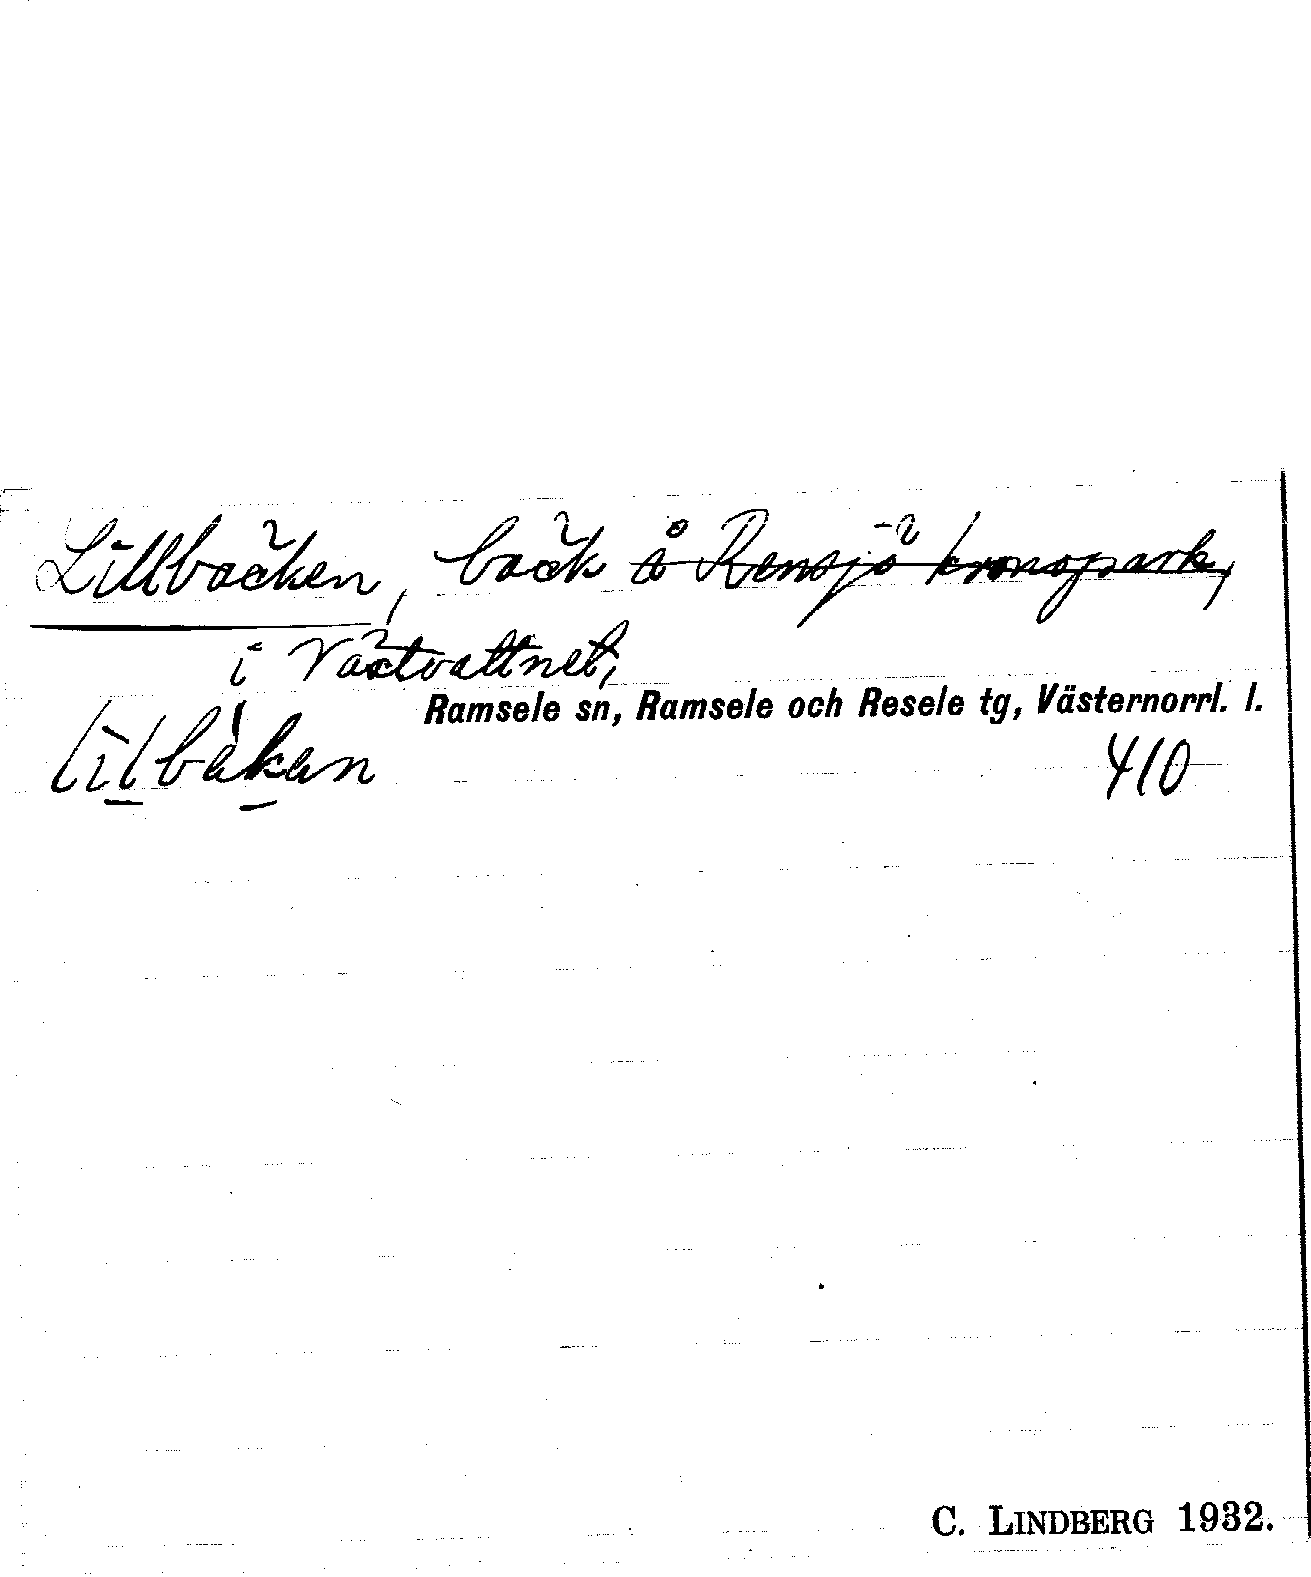 Lillbäcken, bäck å Rensjö kronopark,
i Västvattnet,
Ramsele sn, Ramsele och Resele tg, Västernorrl. l.
410
C. LINDBERG 1932.